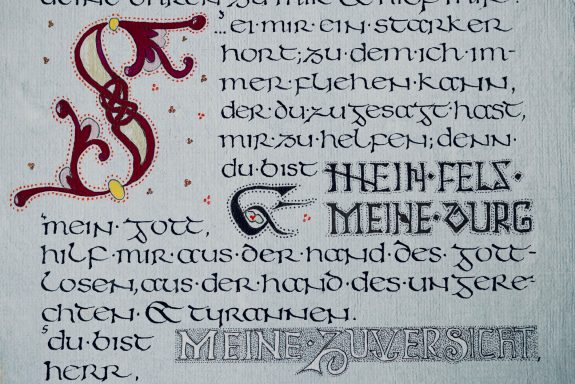 deine ohren zu mir & hilf mir!
Sei·mir·ein·starker
hort;zu·dem·ich·im-
mer·fliehen·kann,
der·du·zugesagt·hast,
mir·zu·helfen;denn·
du·bist MEIN·FELS·
& MEINE·BURG
4mein·gott,
hilf·mir·aus·der·hand·des·gott-
losen,aus·der·hand·des·ungere-
chten·&·tyrannen.
5du·bist MEINE·ZUVERSICHT,
herr,